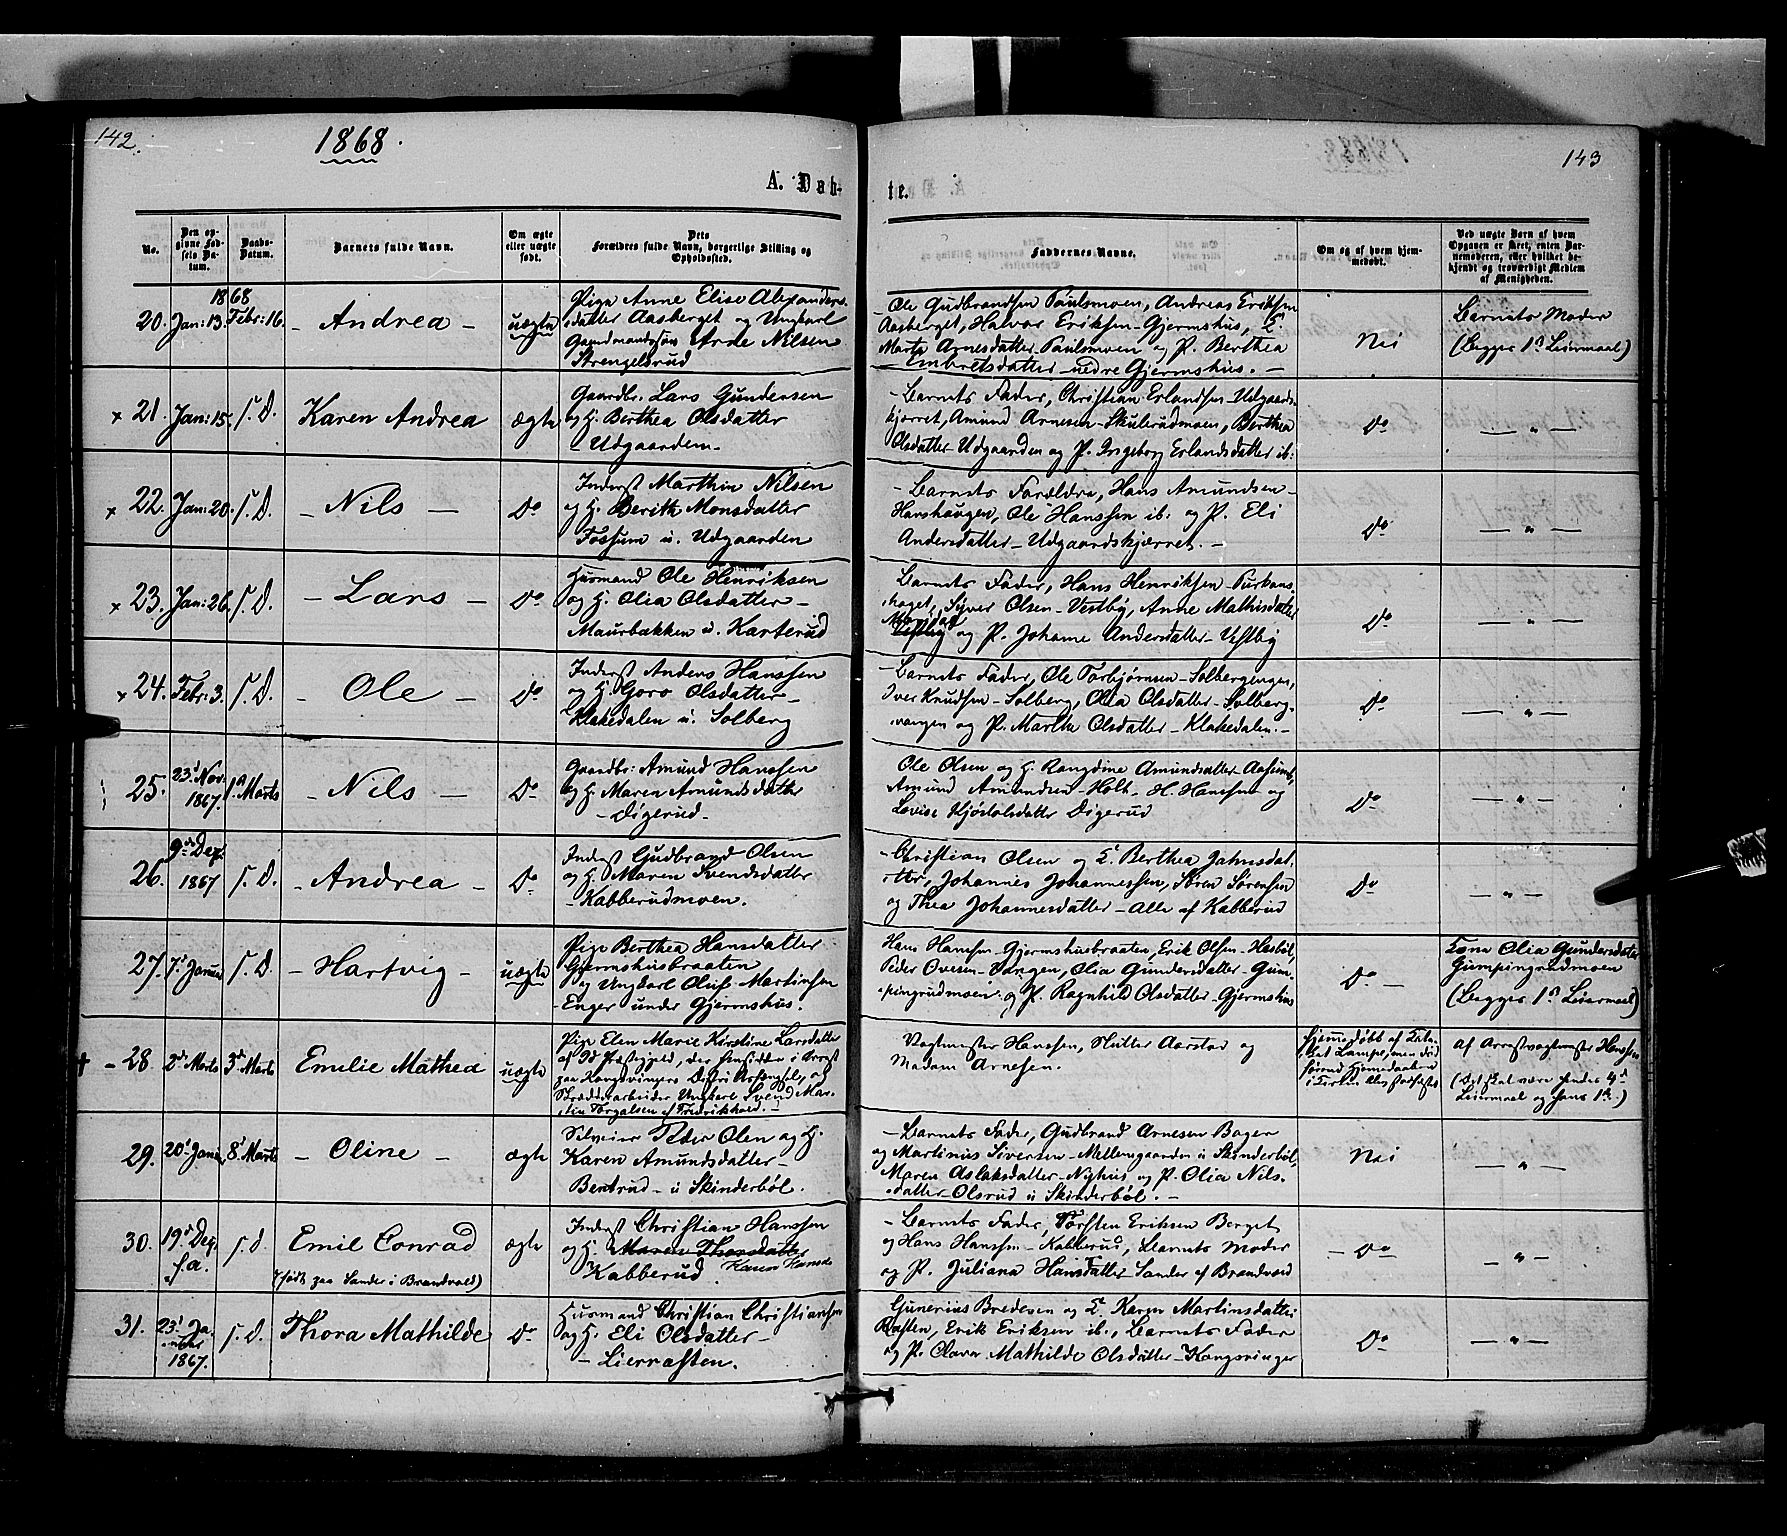 142.
1868.
143
A. Døb-
te.
No.
Den op-
givne Fød-
sels Da-
tum.
Daabs-
Datum.
Barnets fulde Navn.
Om ægte
eller uægte
født.
Dets
Forældres fulde Navn, borgerlige Stilling og
Opholdssted.
Faddernes Navne.
Om og af hvem hjem-
medøbt.
Ved uægte Barn af hvem
Opgaven er sket, enten Bar-
nemoderen, eller hvilket be-
kjendt og troværdigt Medlem
af Menigheden.
1868
20. Jan: 13. Febr: 16. - Andrea - uægte
Pige Anne Elise Alexanders-
datter Aasberget og Ungkarl
Gaardmandssøn Arne Nilsen
Strengelsrud
Ole Gudbrandsen Paulsmoen, Andreas Eriksen
Aasberget, Halvor Eriksen - Gjermshus, E.
Marte Arnesdatter Paulsmoen og P. Berthea
Embretsdatter nedre Gjermshus. -
Nei
Barnets Moder
(Begges 1ste Leiermaal)
x 21. Jan: 15. s. D. Karen Andrea ægte
Gaardbr. Lars Gundersen
og H. Berthea Olsdatter
- Udgaarden -
- Barnets Fader, Christian Erlandsen - Udgaards-
kjærret, Amund Arnesen - Skulerudmoen, Berthea
Olsdatter - Udgaarden og P. Ingeborg Erlandsdatter ib:
Do
— " —
x 22. Jan: 20. s. D. - Nils - Do
Inderst Marthin Nilsen
og H. Berith Monsdatter
Fossum u. Udgaarden
- Barnets Forældre, Hans Amundsen -
Harshaugen, Ole Hanssen ib: og P. Eli
Andersdatter - Udgaardskjærret. -
Do
— " —
x 23. Jan: 26. s. D. - Lars - Do
Husmand Ole Henriksen
og H. Olia Olsdatter -
Maurbækken u. Karterud
Barnets Fader, Hans Henriksen -
Syver Olsen - Vestby, Anne Mathisdatter
Vestby og P. Johane Andersdatter - Vestby
Do
— " —
x 24. Febr: 3. s. D. - Ole - Do
Inderst Anders Hanssen
og H. Goro Olsdatter -
Klakedalen u. Solberg
- Barnets Fader, Ole Torbjørnsen - Solbergengen,
Iver Knudsen - Solberg, Olia Olsdatter - Solberg-
vangen og P. Marthe Olsdatter - Klakedalen. -
Do
— " —
25. 23d Nov: 1867. 1ste Marts - Nils - Do
Gaardbr: Amund Hanssen
og H. Maren Amundsdatter
- Digerud -
Ole Olsen og H. Rangdine Amundsdatter - Aasund,
Amund Amundsen - Holt - H. Hanssen og
Lovise Kjøstolsdatter Digerud
Do
— " —
26. 9de Dez: 1867 s. D. - Andrea - Do
Inderst Gudbrand Olsen
og H. Maren Svendsdatter
- Kabberudmoen.
- Christian Olsen og E. Berthea Jahnsdat-
ter, Johannes Johannessen, Søren Sørensen
og Thea Johannesdatter - Alle af Kabberud
Do
— " —
27. 7d Januar s. D. - Hartvig - uægte
Pige Berthea Hansdatter
Gjermshusbraaten
og Ungkarl Oluf Martinsen
- Enger under Gjermshus.
Hans Hansen - Gjermshusbraaten, Erik Olsen - Hesbøl,
Peder Ovesen - Vangen, Olia Gundersdatter - Gum-
pingrudmoen og P. Ragnhild Olsdatter - Gjermshus
Do -
Kone Olia Gundersdatter
Gumpingrudmoen
(Begges 1ste Leiermaal)
+ - 28. 2den Marts 3die Marts Emilie Mathea uægte
Pige Elen Marie Kirstine Larsdatter
af Id Præstegjeld, der hensidder i Arrest
paa Kongsvingers Distri Arfængsel, og
Skrædderarbeider Ungkarl Svend Mar-
tin Torgalsen af Fredrikshald. -
Vagtmester Hanssen, Slutter Aarstad og
Madam Arnesen.
Hjemmedøbt af
af Arrestvagtmester Hanssen
(Det skal være hendes 4de
Leiermaal og hans 1ste)
29. 20d Januar 8d Marts - Oline - ægte
Selveier Peder Olsen og H.
Karen Amundsdatter -
Bentrud - u Skinderbøl.
- Barnets Fader, Gudbrand Arnesen Bager
og Martinus Siversen - Mellemgaarden u Skinderbøl,
Maren Aslaksdatter - Nyhus og P. Olia Nils-
datter - Olsrud u Skinderbøl. -
Nei
— " —
30. 19d Dez. f.a. s. d. Emil Conrad ægte
(født paa Sander i Brandvold)
Inderst Christian Hanssen
og H. Maren Thorsdatter
Kabberud. Karen Hansd:
- Barnets Fader, Torsten Eriksen Berget
og Hans Hanssen - Kabberud, Barnets Moder
og P. Juliana Hansdatter - Sander af Brandvold
- Do
- " -
31. 23d Januar 1867. s. D. Thora Mathilde Do
Husmand Christian Christiansen
og H. Eli Olsdatter -
- Lierræften.
Gunerius Bredesen og E. Karen Martinsdatter
Ræften, Erik Eriksen ib., Barnets Fader
og P. Olava Mathilde Olsdatter - Kongsvinger
Do
— " —